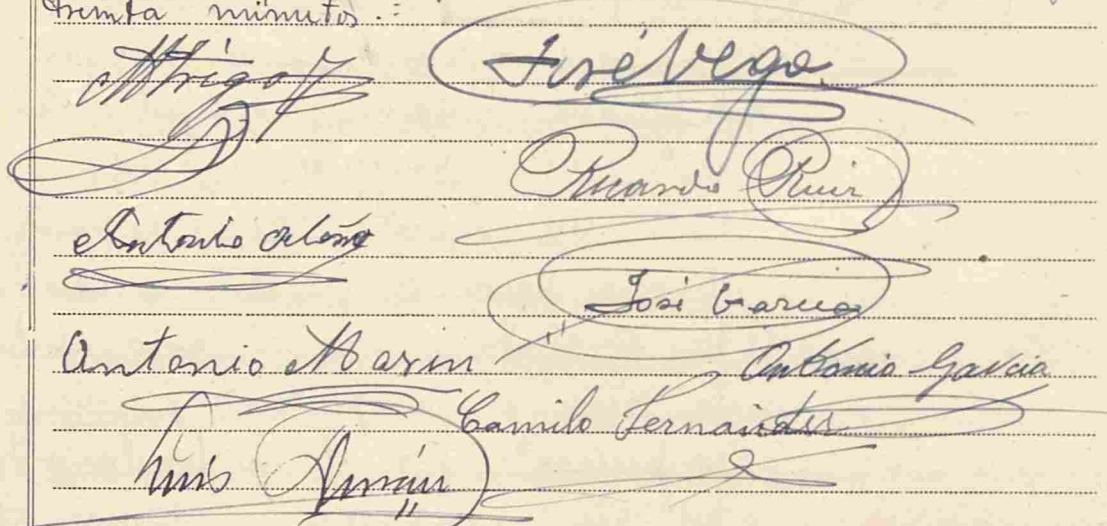 treinta minutos.=
José Vega
Ricardo Ruiz
Antonio
José Garcia
Antonio Marin
Antonio Garcia
Camilo Fernandez
Luis